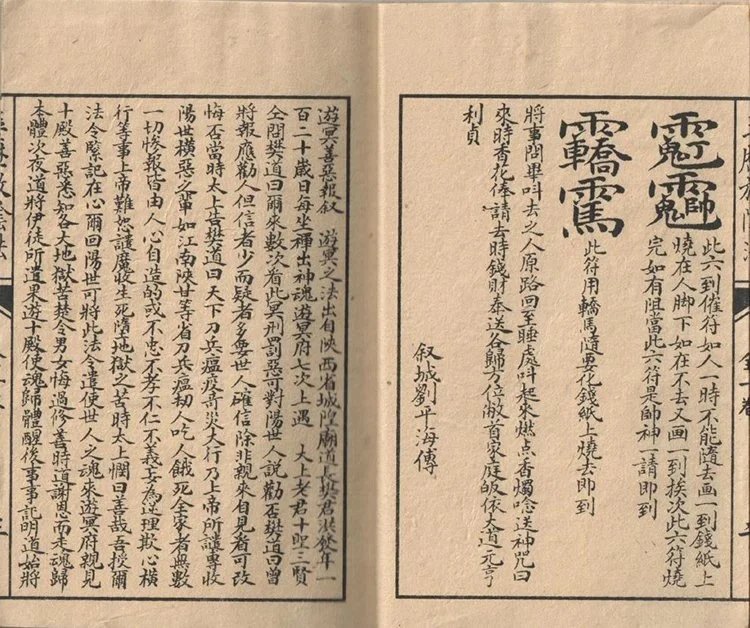 此六到催符如人一時不能隨去画一到錢紙上
燒在人脚下如在不去又画一到挨次此六符燒
完如有阻當此六符是帥神一請即到
此符用轎馬隨要化錢紙上燒去即到
將事問畢呌去之人原路回至睡處呌起來燃点香燭唸送神咒曰
來時香花俸請去時錢財奉送各歸方位敝首家庭皈依大道元亨
利貞
叙城劉平海傳
遊冥善惡報叙 遊冥之法出自陝西省城隍廟道長樊君洪發年一
百二十歲日每坐禪出神魂遊冥府七次上遇 大上老君十聖三賢
仝問樊道曰爾來數次看此冥刑罰惡可對陽世人説勸否樊道曰曾
將報應勸人但信者少而疑者多要世人確信除非親來自見者可改
悔否當時太上告樊道曰天下刀兵瘟疫奇災大行乃上帝所譴專收
陽世橫惡之輩如江南陝甘等省刀兵瘟刼人吃人餓死全家者無數
一切慘報皆由人心自造的或不忠不孝不仁不義妄為逆理欺心橫
行等事上帝難恕譴魔收生死墮地獄之苦時太上憫曰善哉吾授爾
法令緊記在心爾回陽世可將此法令遣使世人之魂來遊冥府親見
十殿善惡悉知各大地獄苦楚令男女悔過修善時道謝恩而未魂歸
本體次夜道將伊徒所遣果遊十殿使魂歸體醒後事事記明道始將